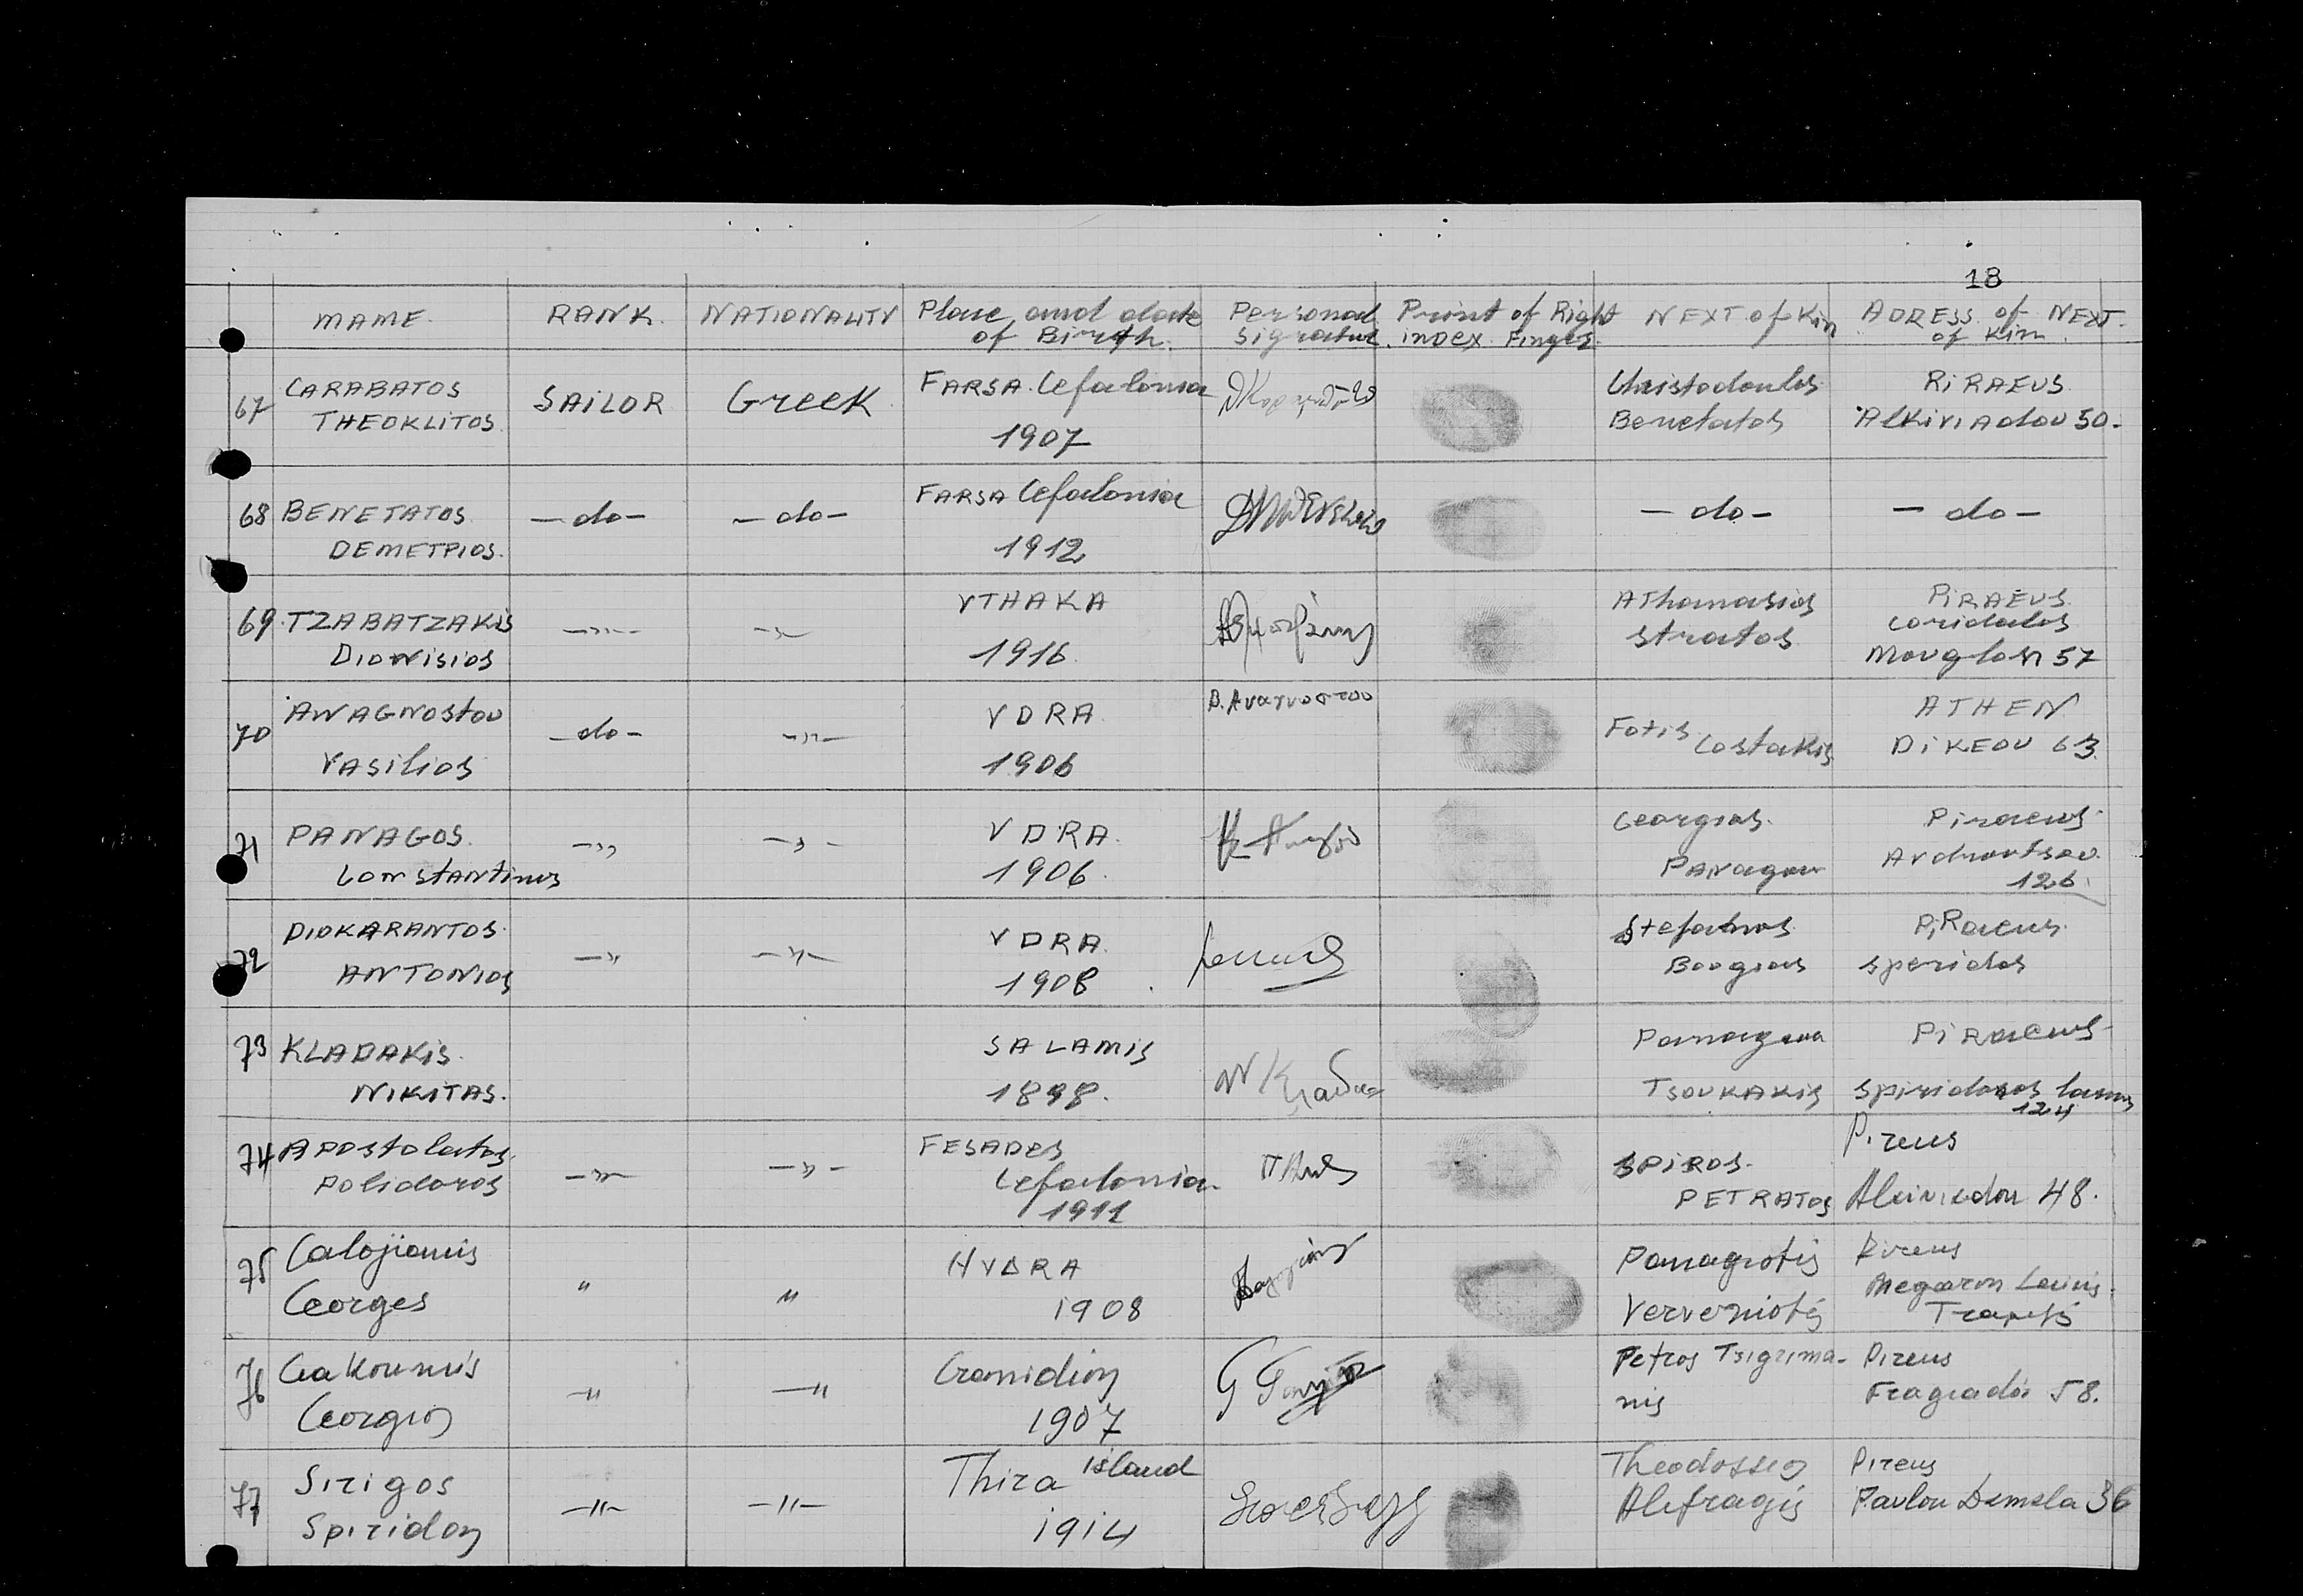 18
MAME. RANK. NATIONALITY Place and date of Birth. Personal signature. Print of Right index Finger. NEXT of Kin ADRESS of NEXT. of Kin.
67 CARABATOS THEOKLITOS. SAILOR Greek FARSA. Cefalonia 1907 Christodoulos Benetatos RIRAEUS. Alkiviadou 50.
68 BENETATOS DEMETPIOS. —do— —do— FARSA Cefalonia 1912 —do— —do—
69. TZABATZAKIS DIONISIOS —»— —»— YTHAKA 1916. Athanasios Stratos PIRAEUS. coridalos Mouglon 57
70 ANAGNOSTOU VASILIOS —do— —»— YDRA 1906 Β. Αναγνοστου Fotis Costakis ATHEN DIKEOU 63
71 PANAGOS. Constantinos —»— —»— YDRA. 1906. Georgios. PANAGOU Piraeus. 126.
72 DIOKARANTOS. ANTONIOS —» —»— YDRA. 1908 Stefanos Piraeus. speridos
73 KLADAKIS. NIKITAS. SALAMIS 1898. TSOUKAKIS Piraeus spiridonos 124
74 APOSTOLATOS. POLIDOROS —»— —»— FESADES Cefalonia. 1911 SPIROS. PETRATOS Pireus 48.
75 Calojiannis Georges " " HYDRA 1908 Panagiotis Verveniotis Pireus Megaron
76 Giakoumis Georgios —"— —"— Cranidion 1907 Petros Tsigrimanis Pireus Fragiadon 58.
77 Sirigos Spiridon —"— —"— Thira island 1914 Theodossios Alefragis Pireus Pavlou Damala 36